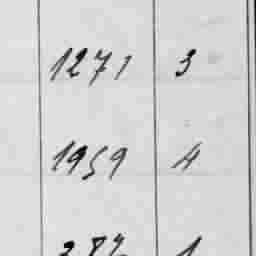 1271 3
1959 4